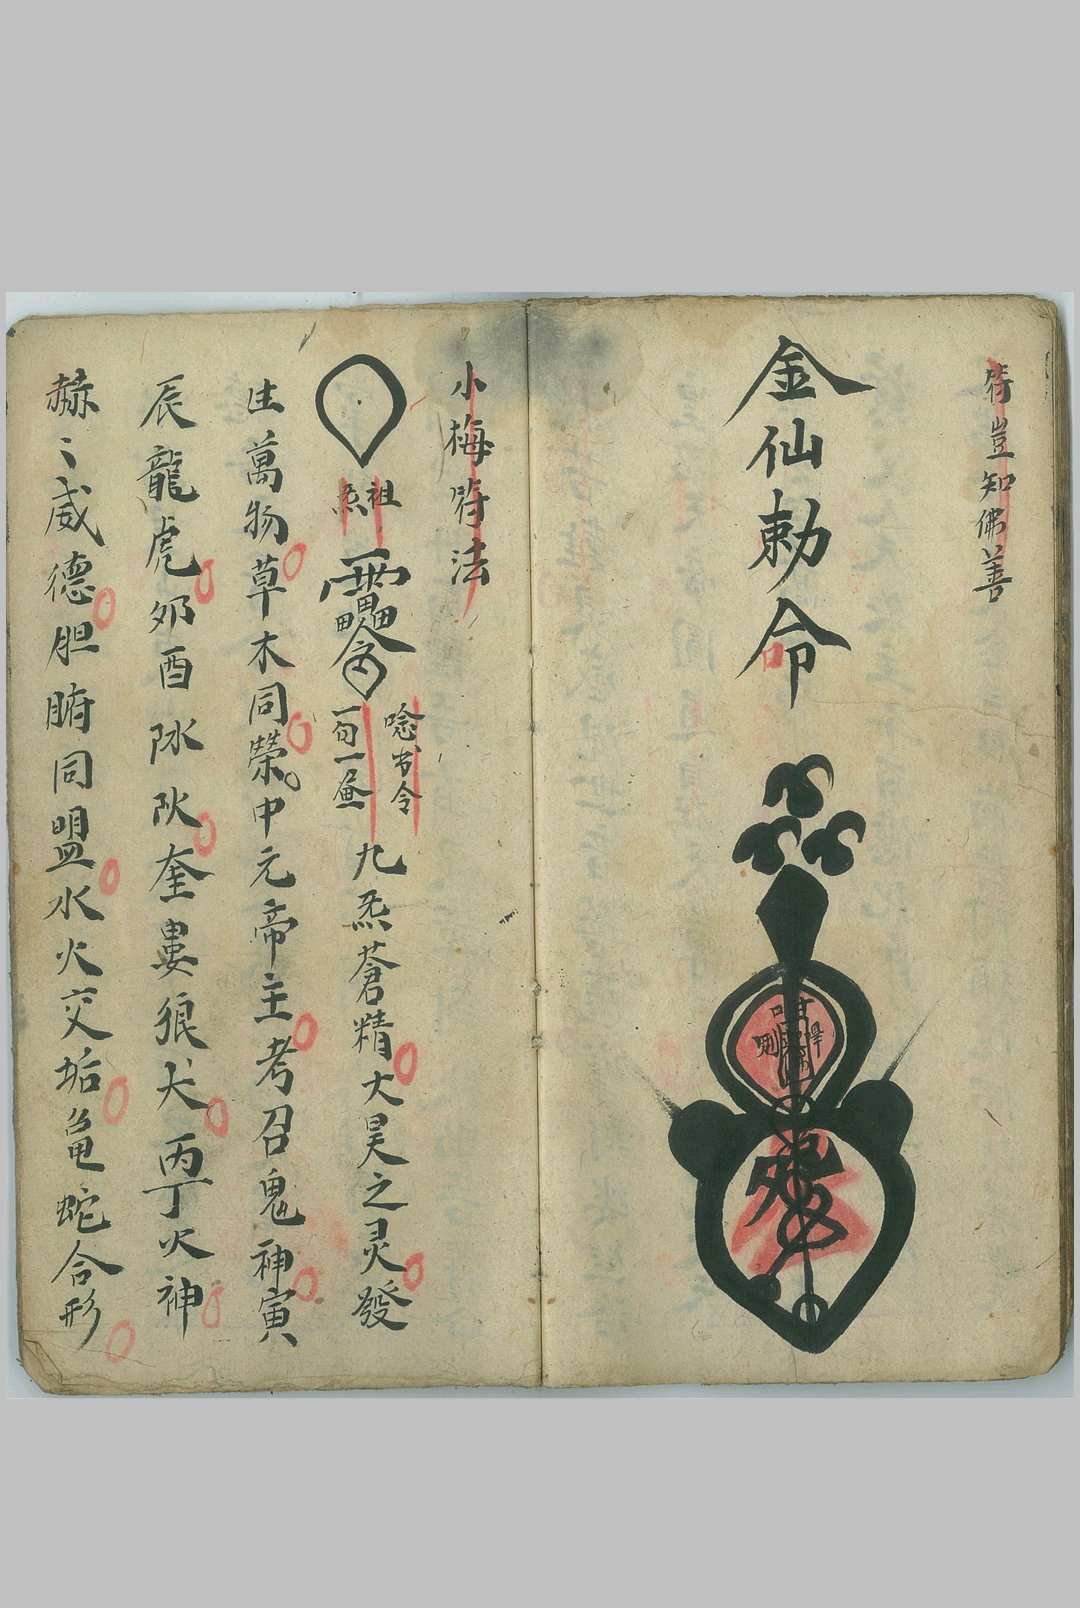 符豈知佛善
金仙勅命
小梅符法
祖炁
唸出令
一句一
九炁蒼精大昊之灵發
生萬物草木同榮中元帝主考召鬼神寅
辰龍虎卯酉奎婁狼犬丙丁火神
赫〻威德胆腑同盟水火交垢龟蛇合形